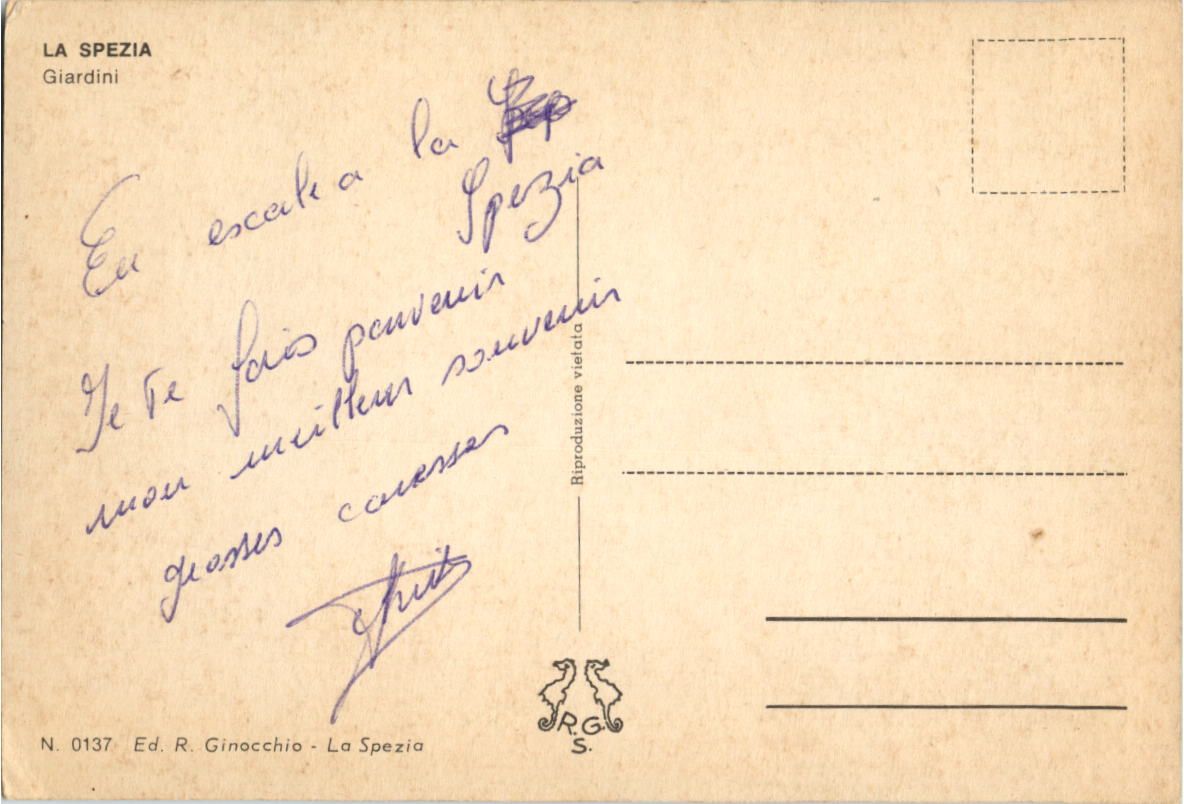 LA SPEZIA
Giardini
En escale a la
Spezia
Je te fais parvenir
mon meilleur souvenir
grosses caresses
Riproduzione vietata
R.G.
S.
N. 0137 Ed. R. Ginocchio - La Spezia